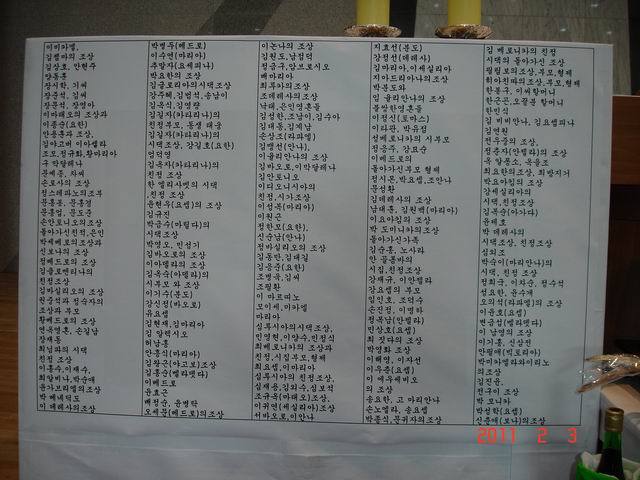 이미카엘,
김젬마의 조상
김상호, 안현주
양동훈
장시학, 기씨
장준석, 김씨
장문석, 장영아
이마태오의 조상과
이종순(요한)
안용훈과 조상,
김야고버 이아셀라
조모,정규화,황마리아
구 막달레나
문세종, 차씨
손로사의 조상
정스테파노의 조부
문홍봉, 문홍경
문홍엽, 문도준
손안토니오의 조상
돌아가신친척,은인
박세베로의 조상과
신보나의 조상
정베드로의 조상
김줄로멘티나의
친정조상
김바실리오의 조상
원준석과 정숙자의
조상과 부모
황베드로의 조상
연옥영혼, 손길남
장재동
최님파의 시댁
친정 조상
이홍수,이재수,
최말비나,박승애
윤가브리엘의조상
박 베네딕도
이 데레사의조상
박병두(베드로)
이수연(마리아)
추말자(요세피나)
박요한의 조상
김글로리아의시댁조상
강주혜,김범석,송남이
김옥식,김명량
김길자(카타리나)의
친정부모, 동생 태웅
김길자(카타리나)의
시댁조상, 강길호(요한)
엄덕영
김옥자(카타리나)의
친정 조상
한 엘리사벳의 시댁
친정 조상
윤현주(요셉)의 조상
김규진
박금수(마틸다)의
시댁조상
박영모, 민성기
김바오로의 조상
이아델라의 조상
김옥순(아델라)의
시부모 와 조상
이기수(분도)
강신정(바오로)
유요셉
김현재,김마리아
김 알렉시오
허남홍
안홍식(마리아)
김왕근(야고보)조상
김홍상(엘리벳다)
이베드로
윤효근
배정순, 윤병탁
오세문(베드로)의조상
이논나의 조상
김원도,남점덕
정금구,암브로시오
배마리아
최루까의 조상
조데레사의조상
낙태,은인영혼들
김성헌,조남이,김수아
김태동,김계남
손상조(라파엘)
김맹선(안나),
이율리안나의 조상
김바오로,이막달레나
김안토니오
이디오니시아의
친정,시가조상
이성복(마리아)
이원근
정한모(요한),
신순남(안나)
정바실리오의 조상
김동만,김대길
김응순(요한)
조병욱,김씨
조필환
이 마르띠노
모이세,미카엘
마리아
심루시아의시댁조상,
민영현,이양수,민정식
최베로니카의 조상과
친정,시집부모,형제
최요셉,이마리아
심루시아의 친정조상,
심재용,김괴수,심보적
조규옥(마태오)조상,
이귀연(세실리아)조상
서바오로,이안나
지효선(분도)
강점선(데레사)
김마리아,이세실리아
지아드리아나의조상
박분도와
임 율리안나의 조상
불쌍한영혼들
이정신(토마스)
이타관, 박유정
성베로니카의 시부모
정응주, 강묘순
이베드로의
돌아가신부모 형제
정시몬,박요셉,조안나
문성환
김데레사의 조상
남대훈, 김원백(마리아)
이요아킴의 조상
박 도미니까의조상
돌아가신가족
김순홍, 노사라
안 골롬바의
시집,친정조상
강재규, 이안젤라
강요셉의 부모
임인호, 조덕수
손진정, 이명하
정복남(안젤라)
민상호(요셉)
최 정다의 조상
박영화 조상
이해영, 이자선
이우춘(요셉)
이 에우세비오
의 조상
송요한, 고 마리안나
손노엘라, 송요셉
박종식,문귀자의조상
김 베로니카의 친정
시댁의 돌아가신 조상
필립보의조상,부모,형제
최아친따의조상,부모,형제
한봉구, 이씨할머니
한근곤,오끝분 할머니
한민식
김 비비안나, 김요셉피나
김연원
전우중의 조상,
정춘자(안젤라)의 조상
옥 말봉소, 옥을조
최요한의조상, 최방지거
박요아킴의 조상
김세실리아의
시댁,친정조상
김복순(아가다)
윤제호
박 데레사의
시댁조상, 친정조상
심외조
박순이(마리안나)의
시댁, 친정 조상
정희구,이차순,정수석
성요한, 윤수개
오의석(라파엘)의 조상
이윤호(요셉)
변금섭(벨라뎃다)
이 남영의 조상
이기홍, 신상전
안필애(빅토리아)
박미카엘라와이리노
의조상
김진윤,
전구이 조상
박 모니카
박성학(요셉)
신순애(보나)의조상
2011 2 3